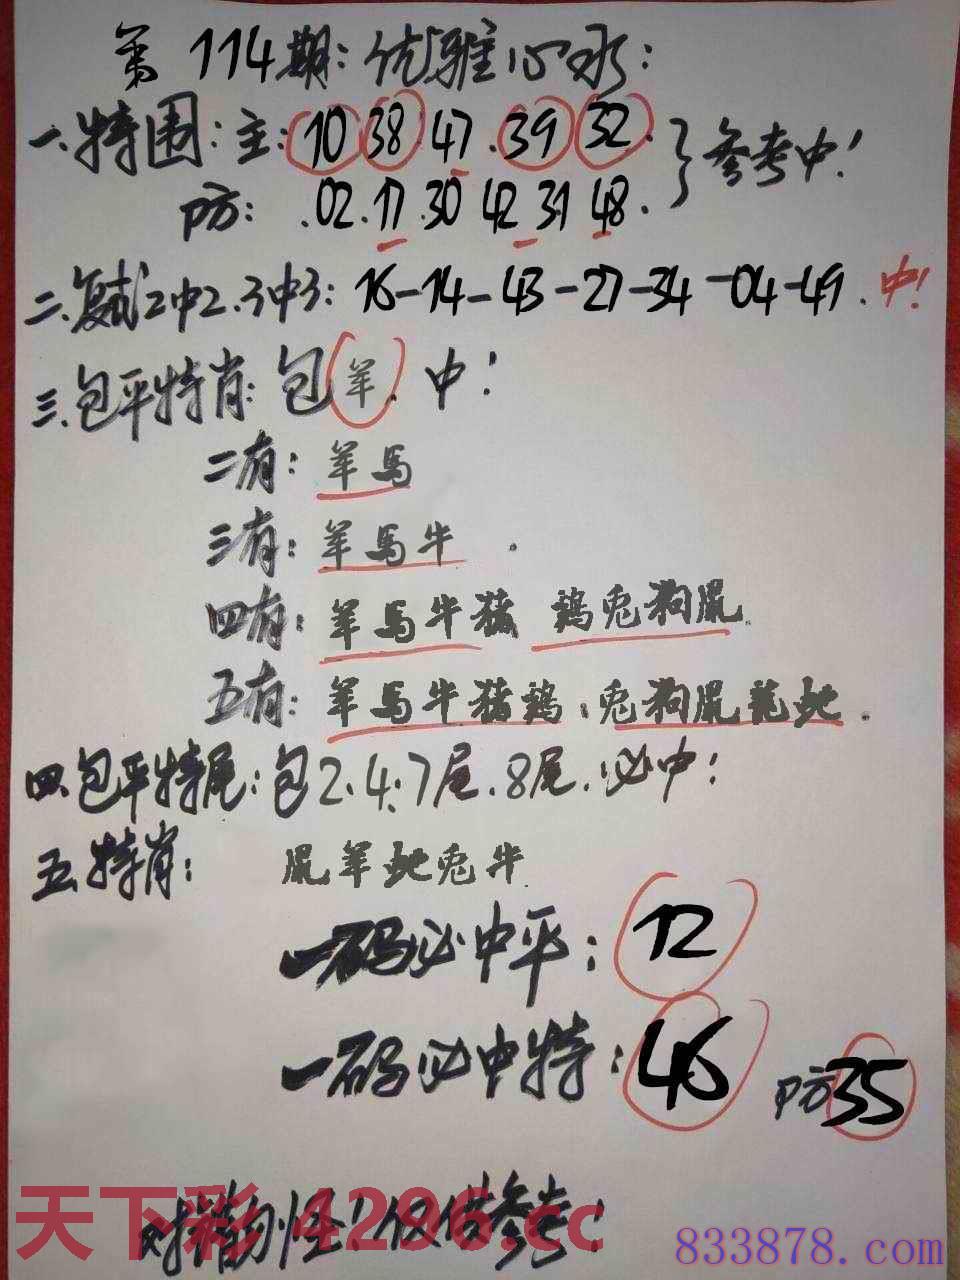 第114期:优雅心水:
一.特围:主:10 38 47.39 32.}参考中!
防:.02.17.30 42 31 48.
二.复式2中2.3中3:16-14-43-27-34-04-49.中!
三.包平特肖:包羊.中!
二有:羊马
三有:羊马牛.
四有:羊马牛猪 鸡兔狗鼠.
五有:羊马牛猪鸡:兔狗鼠龍蛇.
四.包平特尾:包2.4.7尾.8尾.必中!
五.特肖:鼠羊蛇兔牛
一码必中平:12
一码必中特:46 防35
对错勿怪!仅供参考!
天下彩 4296.cc
833878.com